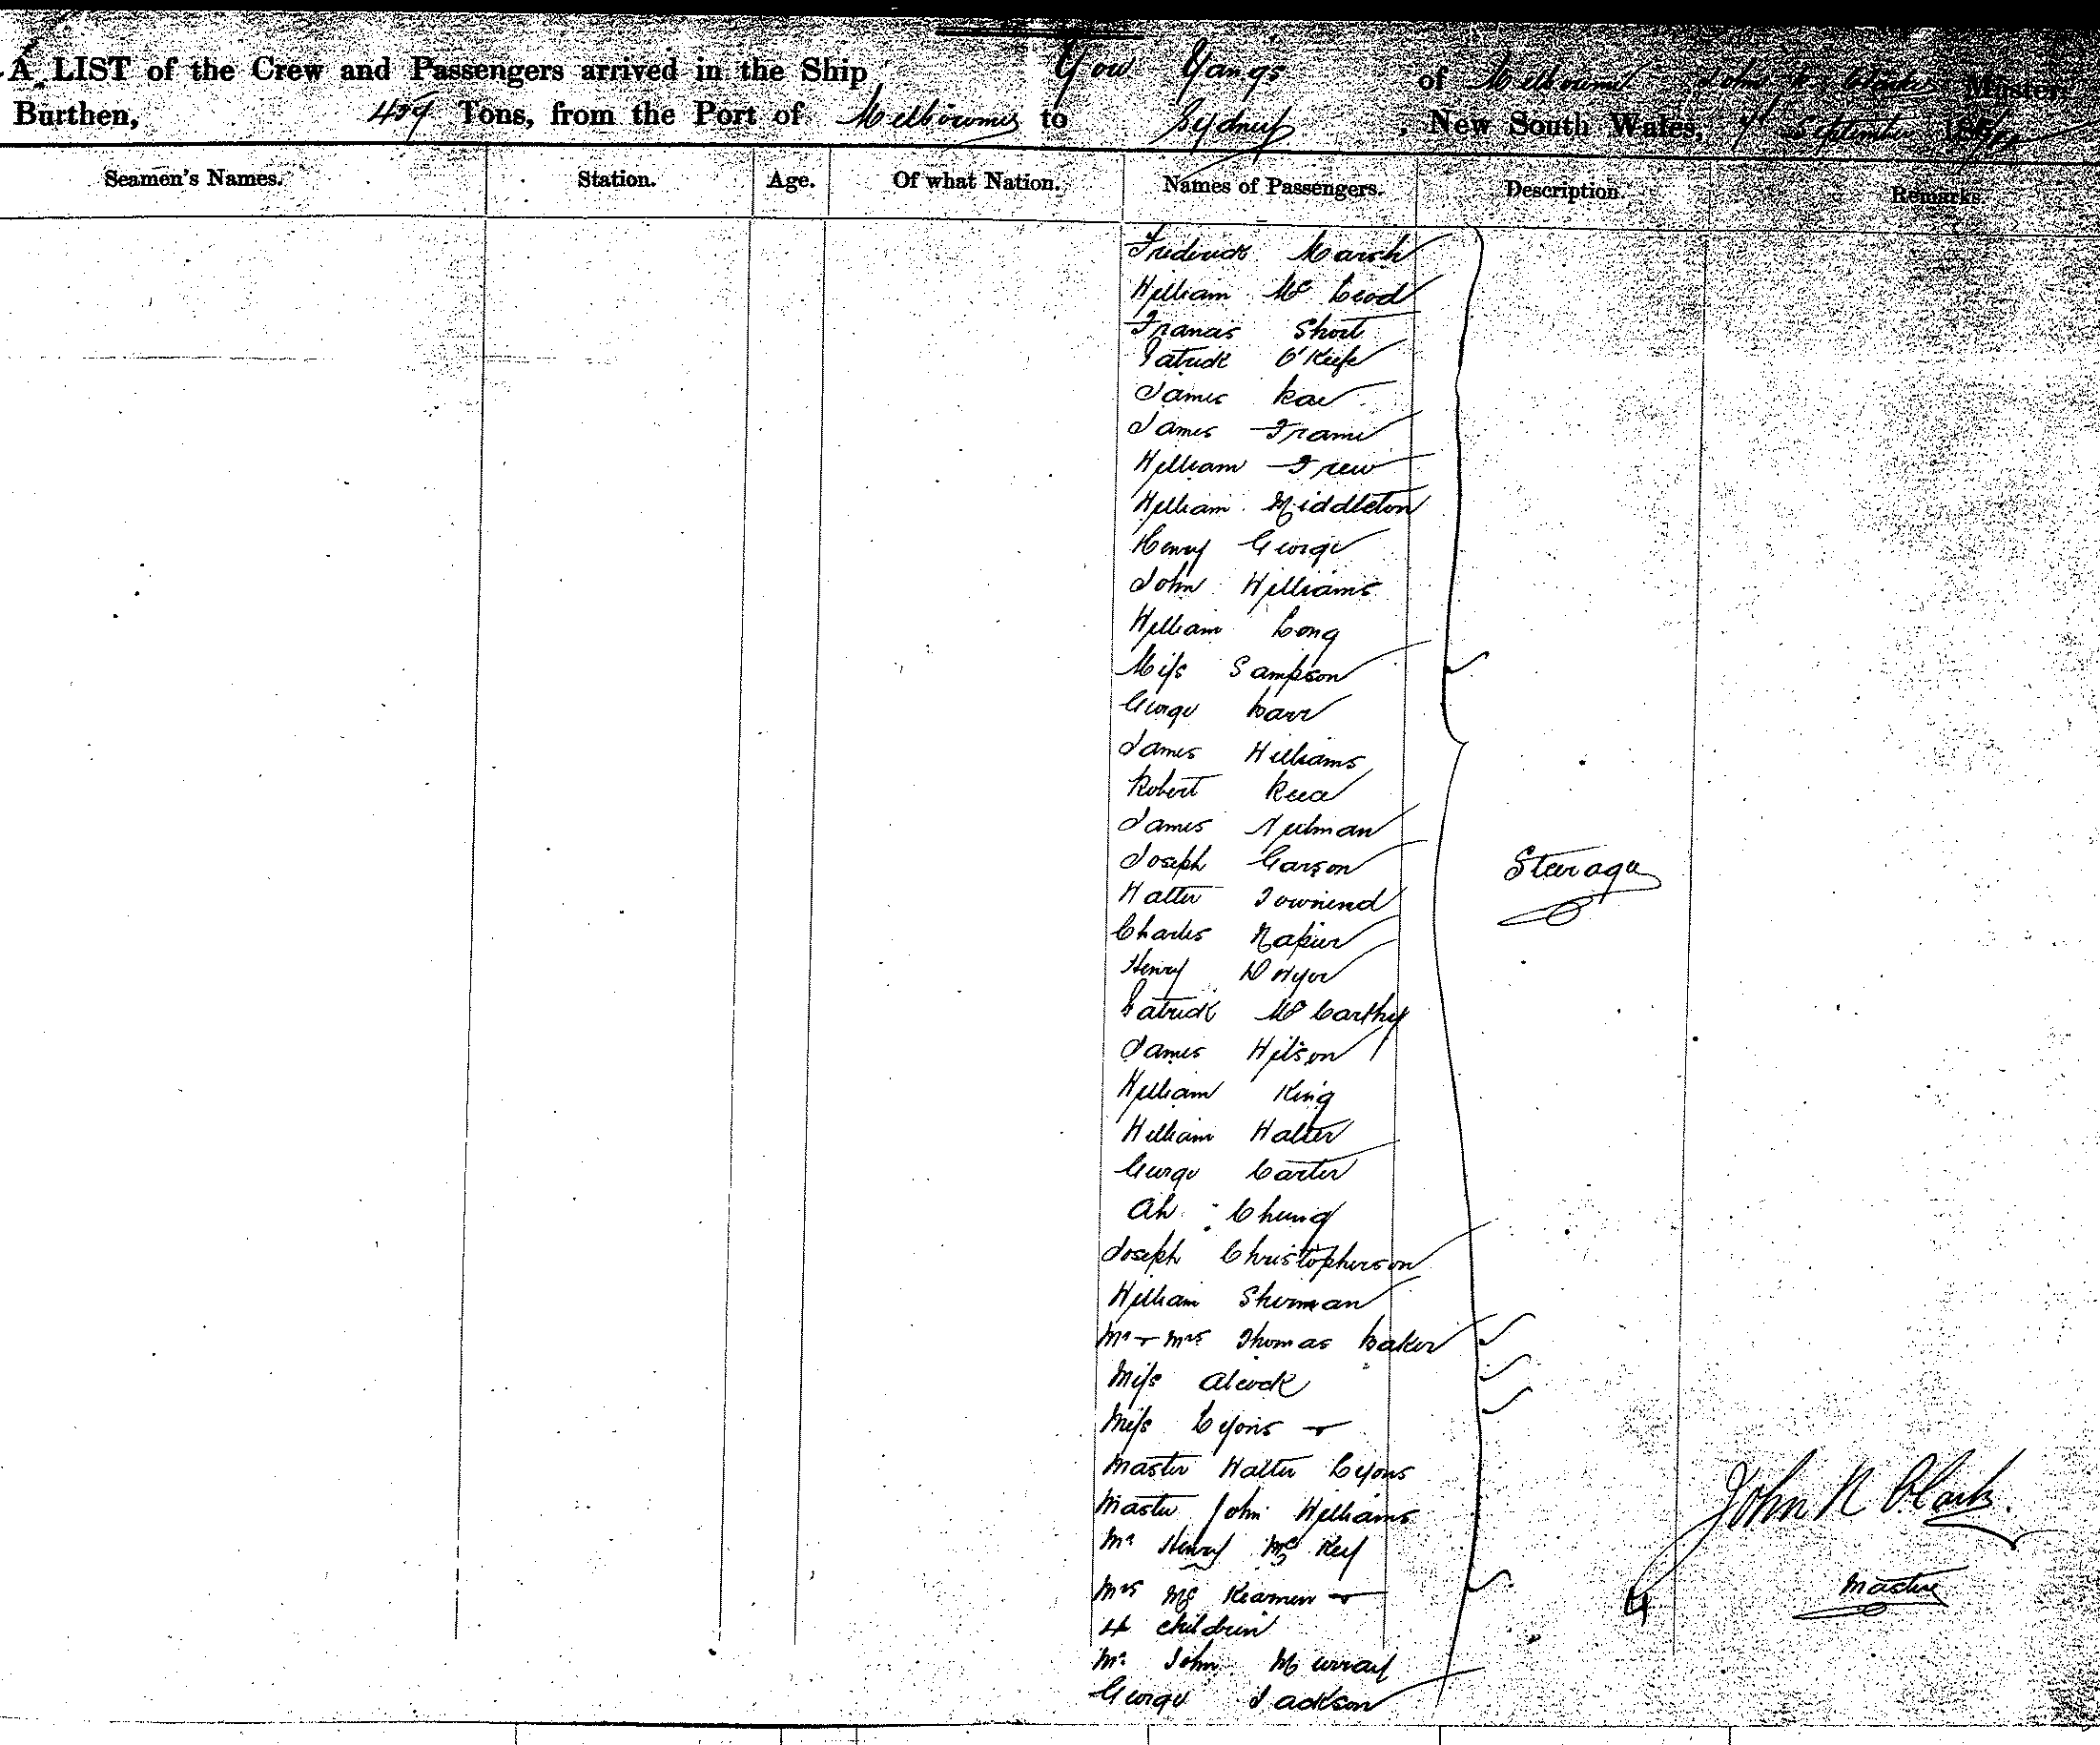 A LIST of the Crew and Passengers arrived in the Ship You Yangs of Melbourne John N. Clark Master,
Burthen, 459 Tons, from the Port of Melbourne to Sydney, New South Wales, 7th September 186
Seamen's Names. Station. Age. Of what Nation. Names of Passengers. Description. Remarks.
Frederick Marsh
William Mc Leod
Francis Short
Patrick O'Keefe
James Rae
James Frame
William Frew
William Middleton
Henry George
John Williams
William Long
Miss Sampson
George Barr
James Williams
Robert Reea
James Neilman
Joseph Garson
Steerage
Walter Townend
Charles Napier
Henry Dwyer
Patrick Mc Carthy
James Wilson
William King
William Walter
George Carter
Ah Chung
Joseph Christopherson
William Sherman
Mr + Mrs Thomas Baker
Miss Alcock
Miss Lyons +
Master Walter Lyons
Master John Williams
John N Clark
Mr Henry Mc Key
Mrs Mc Keamen +
Master
4
4 children
Mr John Murray
George Jackson